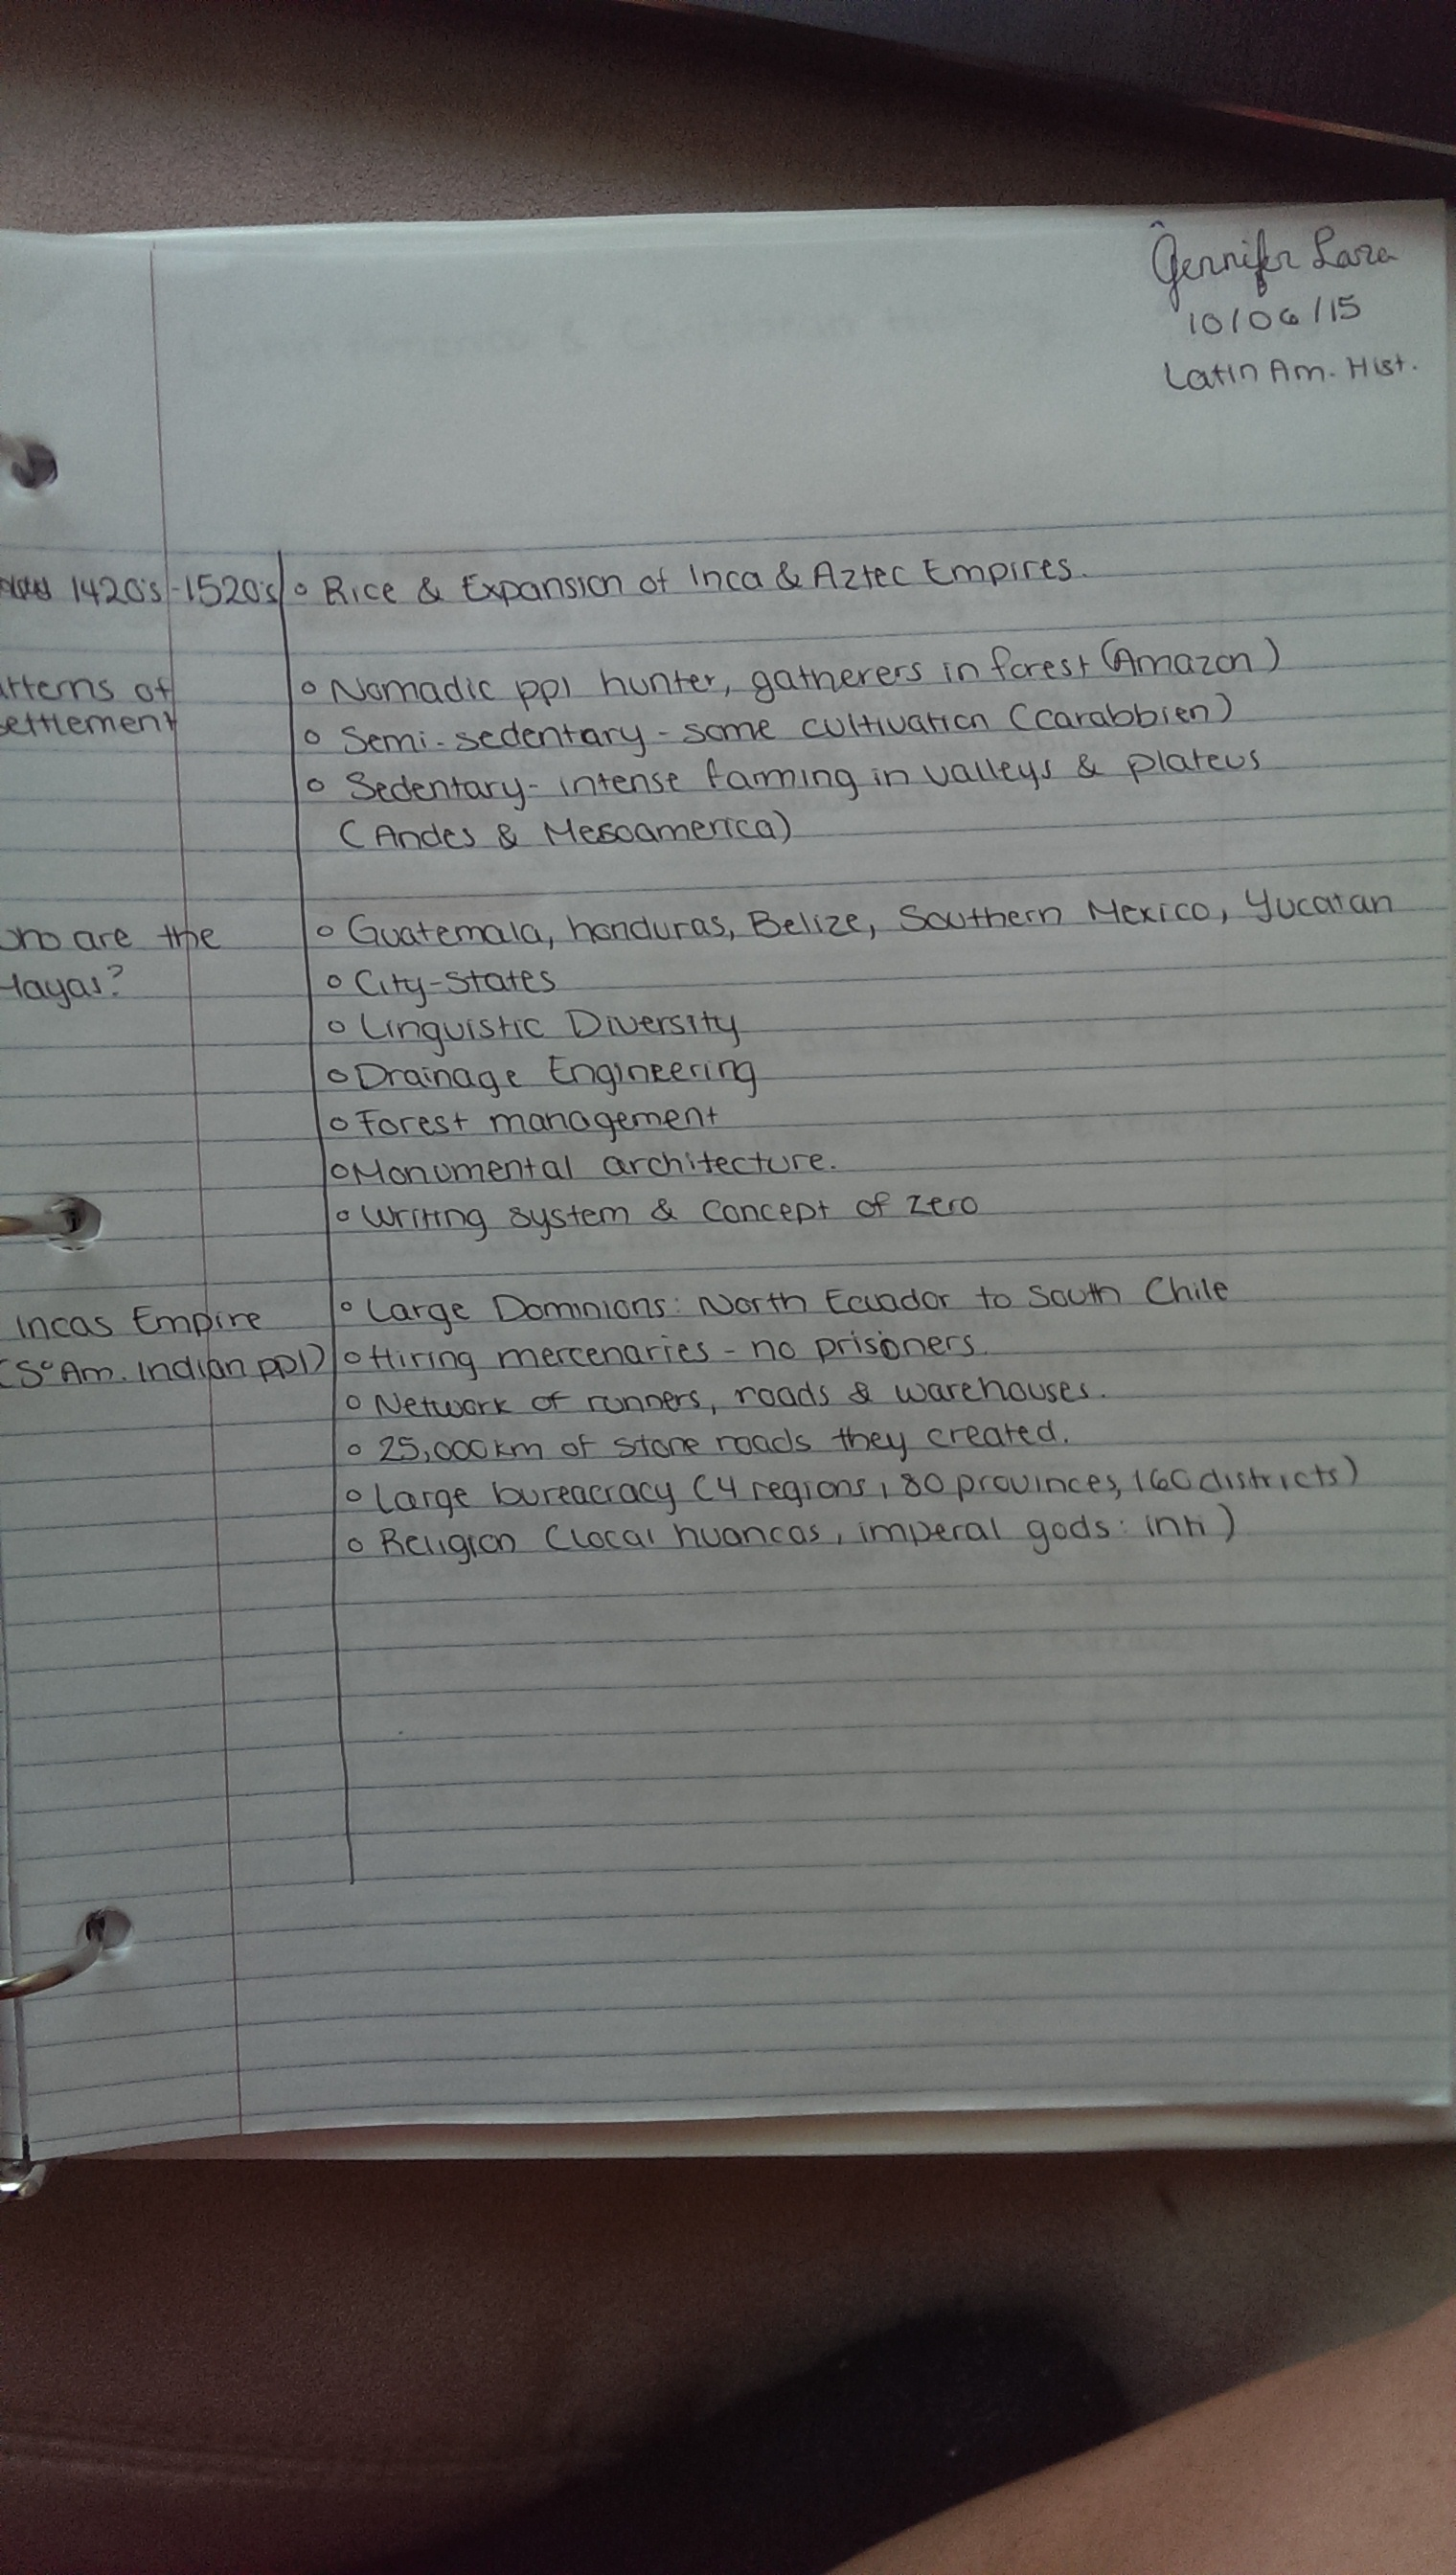 Jennifer Lara
10/06/15
Latin Am. Hist.
1420's-1520's ○ Rice & Expansion of Inca & Aztec Empires.
atterns of ○ Nomadic ppl hunter, gatherers in forest (Amazon)
settlement ○ Semi-sedentary - some cultivation (carabbien)
○ Sedentary- intense farming in valleys & plateus
(Andes & Mesoamerica)
who are the ○ Guatemala, honduras, Belize, Southern Mexico, Yucatan
Mayas? ○ City-States
○ Linguistic Diversity
○ Drainage Engineering
○ Forest management
○ Monumental architecture.
○ Writing system & Concept of zero
Incas Empire ○ Large Dominions: North Ecuador to South Chile
(So Am. Indian ppl) ○ Hiring mercenaries - no prisoners.
○ Network of runners, roads & warehouses.
○ 25,000km of stone roads they created.
○ Large bureacracy (4 regions, 80 provinces, 160 districts)
○ Religion (Local huancas, imperal gods: inti)